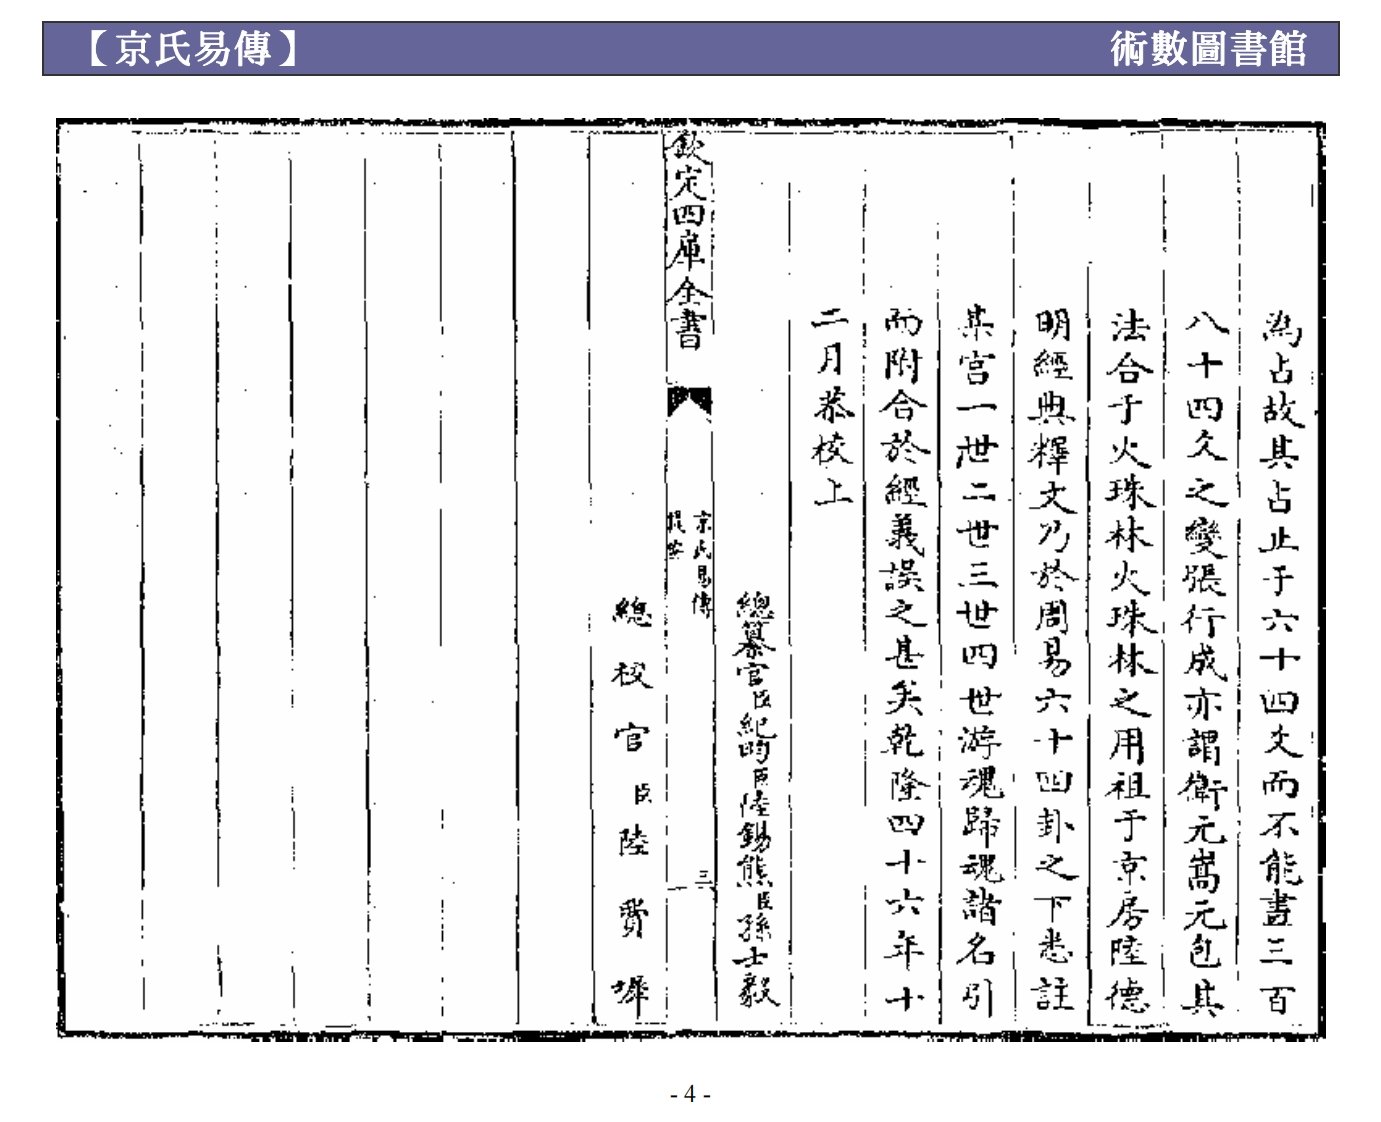 【京氏易傳】
術數圖書館
為占故其占止于六十四爻而不能盡三百
八十四爻之變張行成亦謂衛元嵩元包其
法合于火珠林火珠林之用祖于京房陸德
明經典釋文乃於周易六十四卦之下悉註
某宫一世二世三世四世游魂歸魂諸名引
而附合於經義誤之甚矣乾隆四十六年十
二月恭校上
總纂官臣紀昀臣陸錫熊臣孫士毅
欽定四庫全書
京氏易傳
提要
三
總校官臣陸費墀
- 4 -